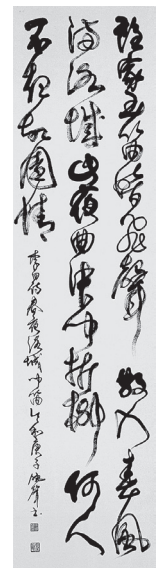 誰家玉笛暗飛聲 散入春風
滿洛城 此夜曲中聞折柳 何人
不起故園情 李白詩春夜洛城聞笛 庚子 書